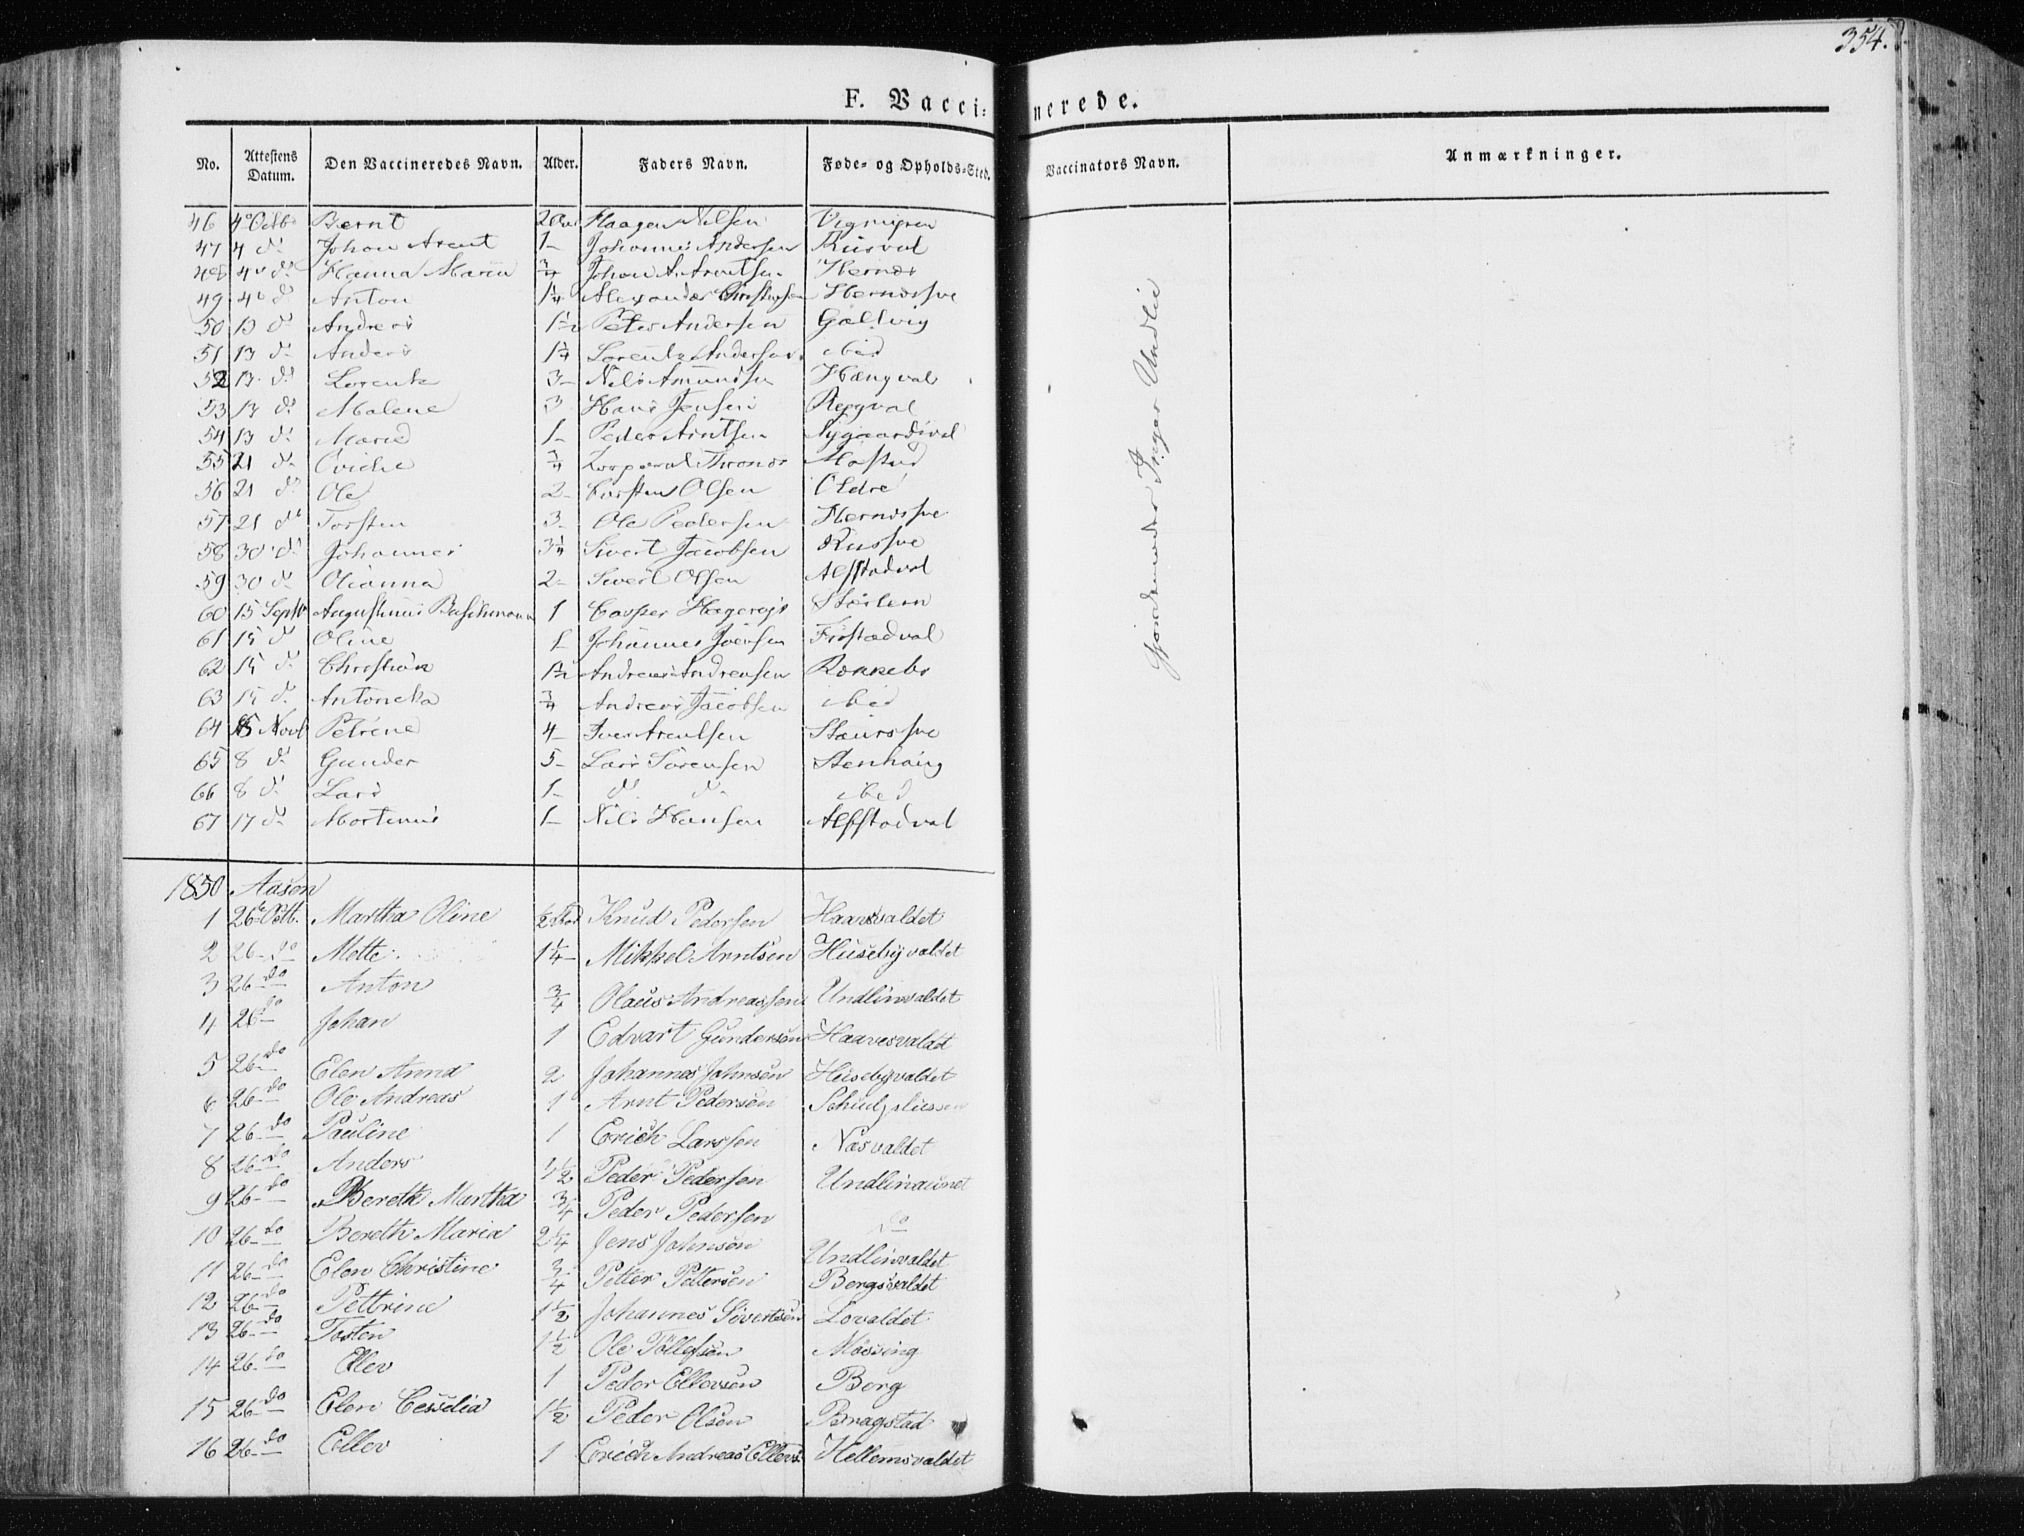 354.
F. Vaccinerede.
No. Attestens Datum. Den Vaccineredes Navn. Alder. Faders Navn. Føde- og Opholds-Sted. Vaccinators Navn. Anmærkninger.
46 4 Octb Bernt 2 Haagen Nilsen
47 4 do Johan Arent 1 - Johannes Andersen Rusval
48 4 do Hanna Maria 3/4 Johan A. Arentsen Hernes
49 4 do Anton 1 1/4 Alexander Hernessve
50 13 do Andreas 1 1/2 Peter Andersen
51 13 do Anders 1 1/4 Lorents Andersen ibid
52 13 do Lorents 3 - Nils Amundsen
53 13 do Malene 3 Hans Jensen
54 13 do Maria 1 - Peder Arntsen Nygaardsval
55 21 do 3/4 Mostad
56 21 do Ole 2 - Torsten Olsen
57 21 do Torsten 3 - Ole Pedersen Hernessve
58 30 do Johannes 3 1/4 Sivert Jacobsen Russve
59 30 do Olianna 2 - Sivert Olsen Alfstadval
60 15 Septb Augustinus 1 Casper
61 15 do Oline 1 Johannes Firstadval
62 15 do Christian 1 1/2 Andreas Andreasen
63 15 do Antonetta 3/4 Andreas Jacobsen ibid
64 Novb Petrine 4 - Iver Arentsen
65 8 do Gunder 5 - Lars Sørensen Stenhaug
66 8 do Lars 1 - do do ibid
67 17 do Mortinus 1 - Nils Hansen Alfstadval
Inger Undlie
1850 Aasen
1 26 Octb. Martha Oline 1/2 Aar Knud Pedersen
2 26 - do Mette 1 1/4 - Mikkel Arntsen Husebyvaldet
3 26 do Anton 3/4 Olaus Andreassen Undlinvaldet
4 26 do Johan 1 Edvart Gundersen
5 26 do Elen Anna 2 Johannes Johnsen Husebyvaldet
6 26 do Ole Andreas 1 Arnt Pedersen
7 26 do Pauline 1 Erich Larssen Næsvaldet
8 26 do Anders 1 1/2 Peder Pedersen Undlinaunet
9 26 do Bereth Martha 3/4 Peder Pedersen do
10 26 do Bereth Maria 2 1/4 Jens Johnsen Undlinvaldet
11 26 do Elen Christine 3/4 Petter Pettersen Bergsvaldet
12 26 do Pettrine 1 1/2 Johannes Sivertsen Lovaldet
13 26 do Tosten 1 1/2 Ole Tollefsen Mossing
14 26 do Ellev 1 Peder Ellevsen Berg
15 26 do Elen Cesselia 1 1/2 Peder Olsen Bragstad
16 26 do Ellev 1 Erich Andreas Ellevs. Hellemsvaldet